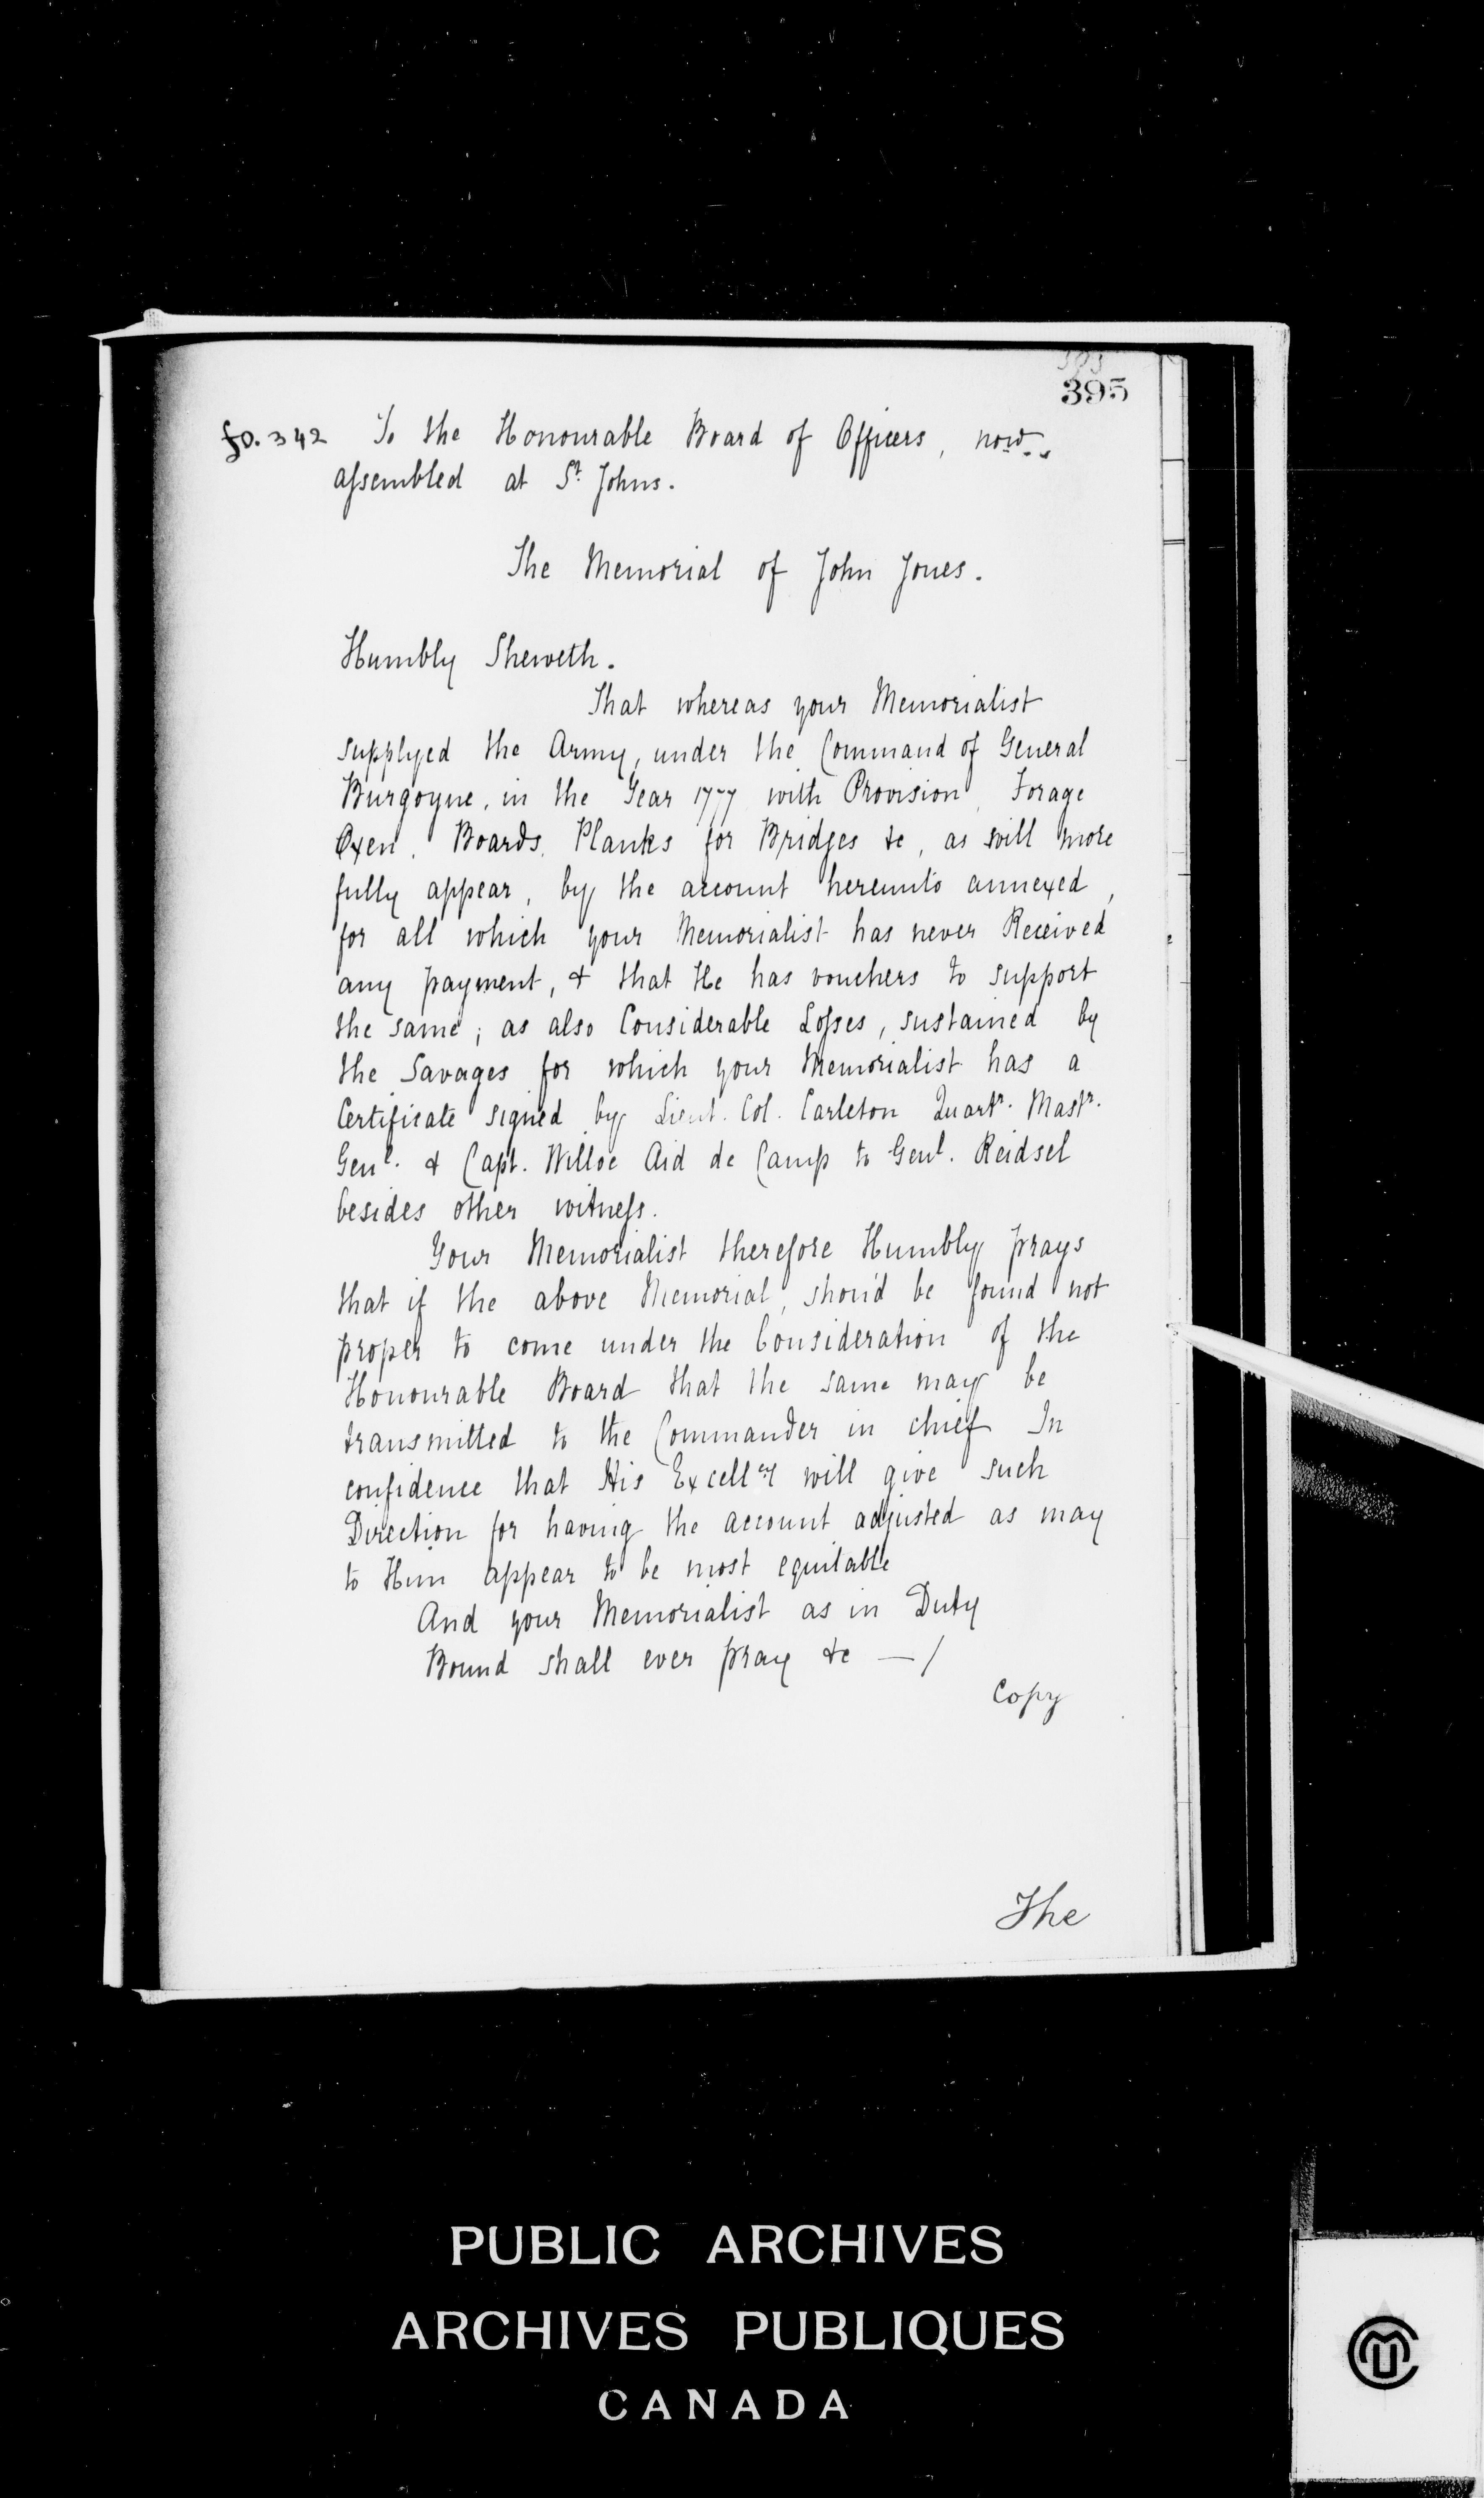 395
fo. 342 To the Honourable Board of Officers, now
assembled at St. Johns.
The Memorial of John Jones.
Humbly Sheweth.
That whereas your Memorialist
supplyed the Army, under the Command of General
Burgoyne, in the Year 1777 with Provision, Forage
Oxen, Boards, Planks for Bridges &c, as will more
fully appear, by the account hereunto annexed,
for all which your Memorialist has never Received
any payment, & that He has vouchers to support
the same; as also Considerable Losses, sustained by
the Savages for which your Memorialist has a
Certificate signed by Lieut. Col. Carleton Quartr. Mastr.
Genl. & Capt. Willoe Aid de Camp to Genl. Reidsel
besides other witness.
Your Memorialist therefore Humbly prays
that if the above Memorial, shou'd be found not
proper to come under the Consideration of the
Honourable Board that the same may be
transmitted to the Commander in chief In
confidence that His Excellcy will give such
Direction for having the account adjusted as may
to Him appear to be most equitable
And your Memorialist as in Duty
Bound shall ever pray &c — /
Copy
The
PUBLIC ARCHIVES
ARCHIVES PUBLIQUES
CANADA